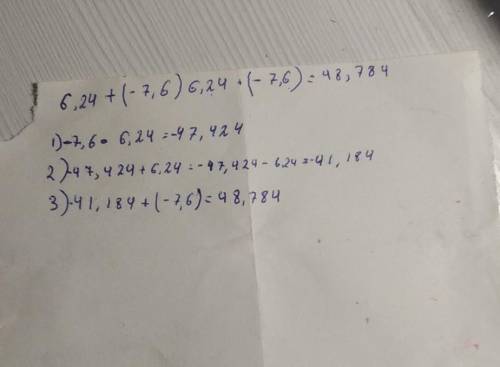 6,24 + (- 7,6) 6,24 + (- 7,6) = 48,784
1) -7,6 • 6,24 = -47,424
2) -47,424 + 6,24 = -47,424 - 6,24 = -41,184
3) -41,184 + (-7,6) = 48,784